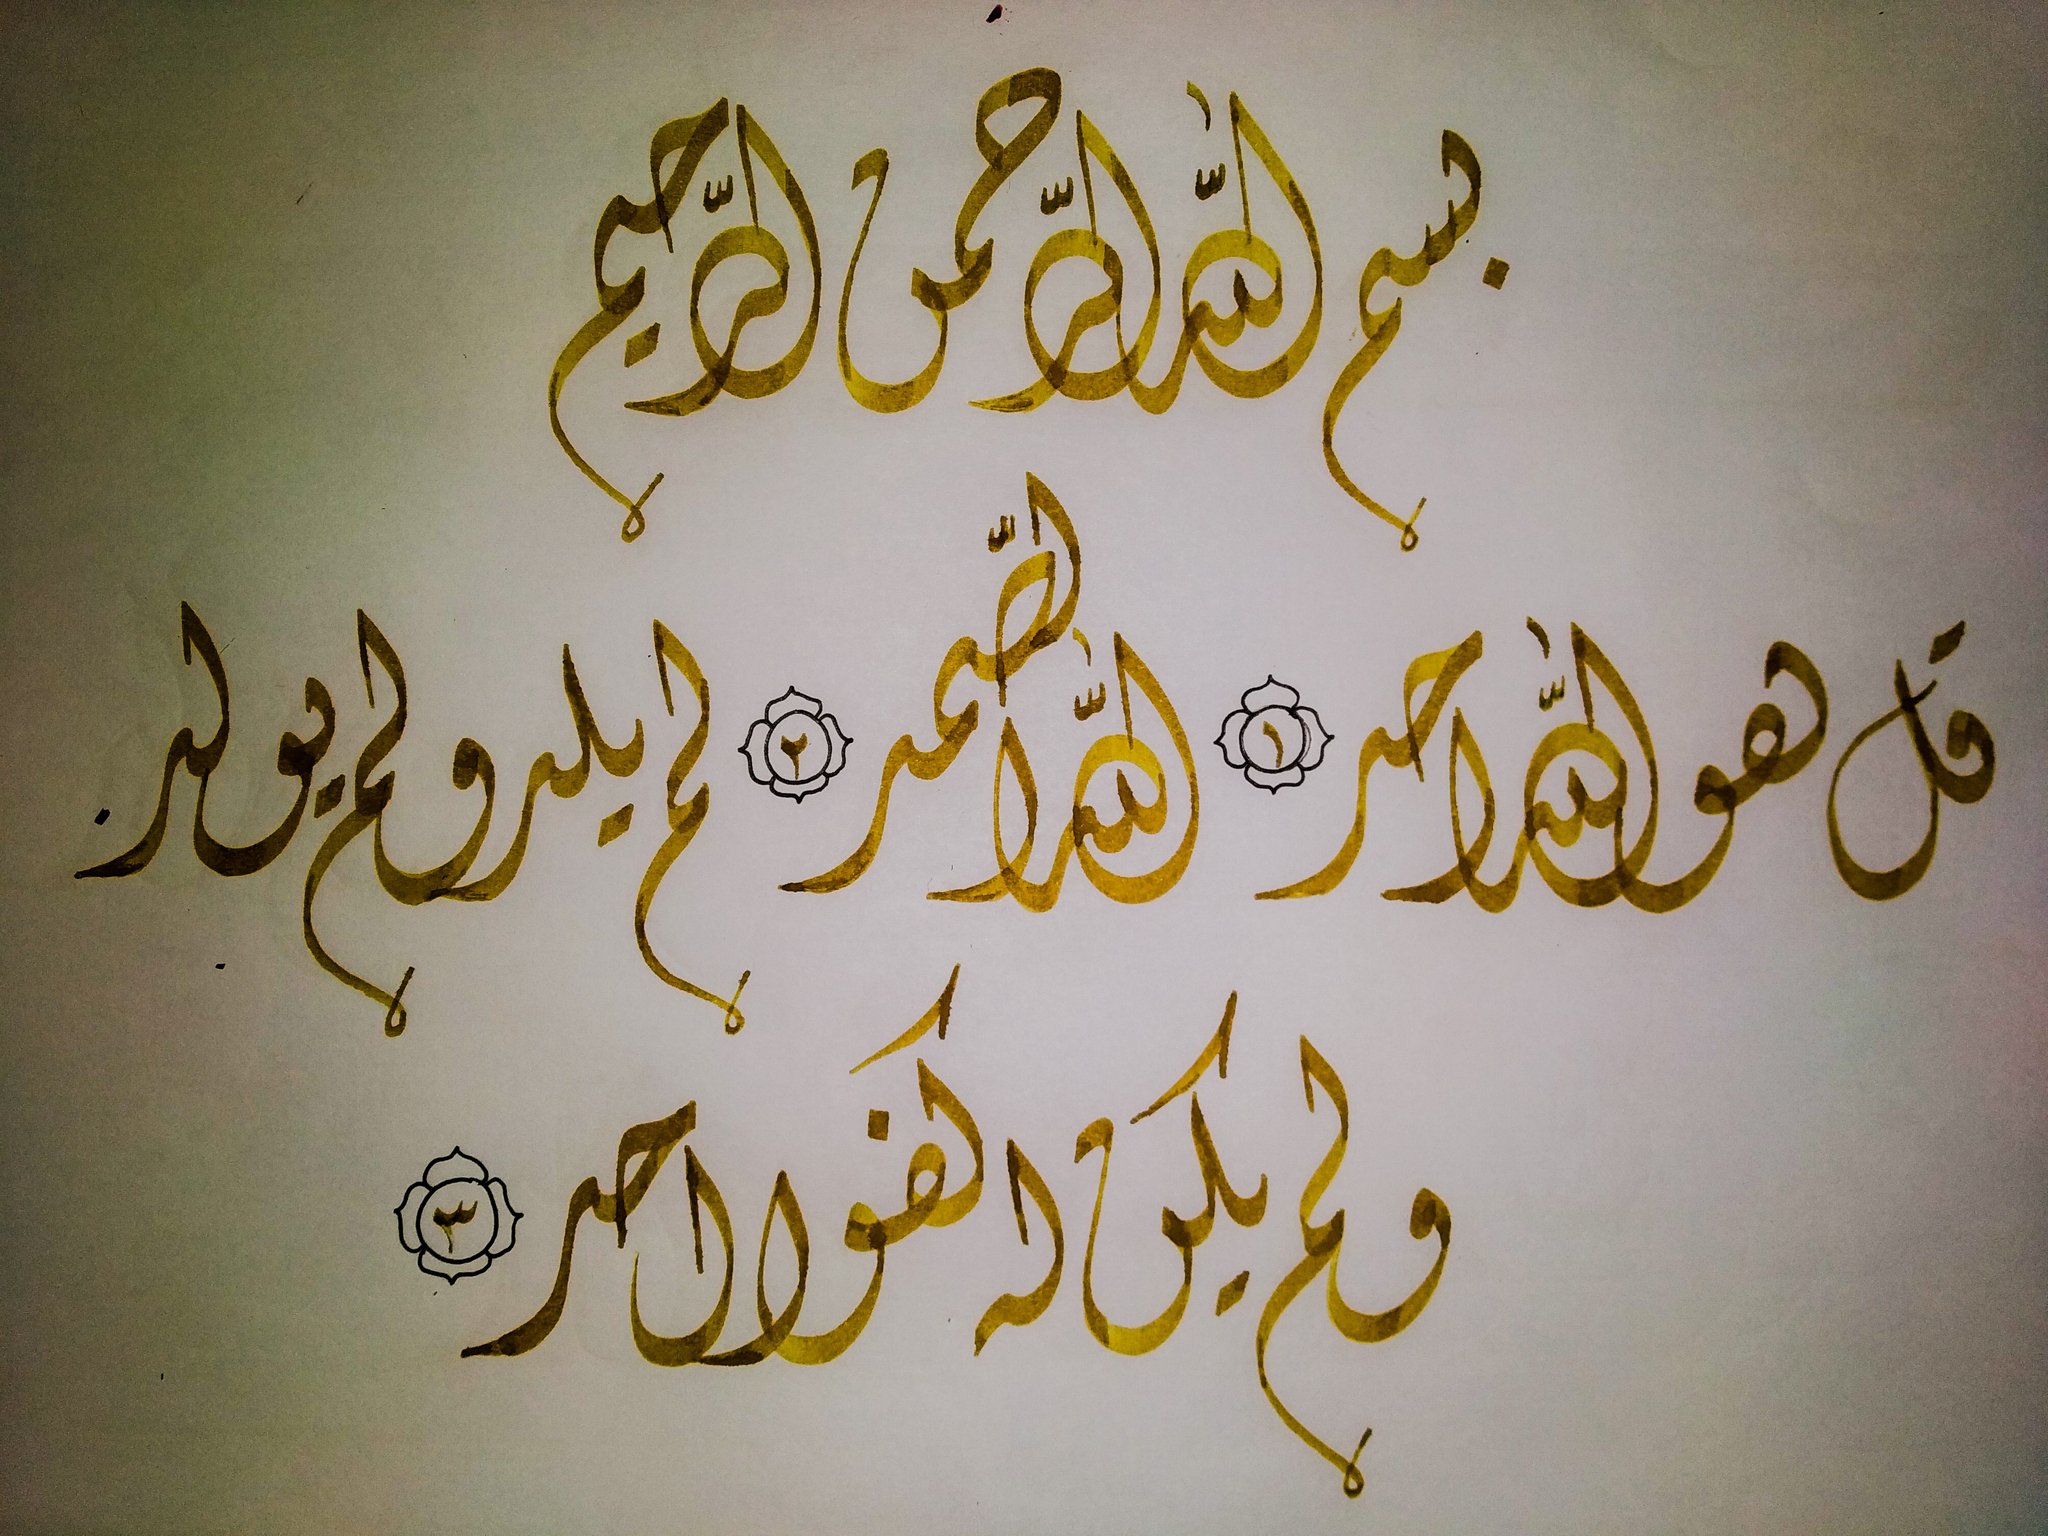 بسم اللّٰه الرّحمن الرّحيم
قل هو اللّٰه احد ١ اللّٰه الصّمد ٢ لم يلد ولم يولد
ولم يكن له كفوا احد ٣